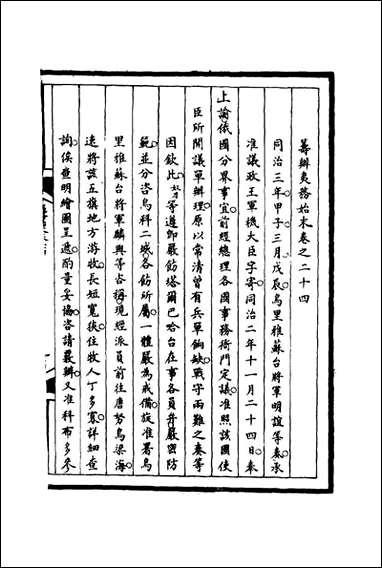 籌辦夷務始末卷之二十四
同治三年甲子三月戊辰烏里雅蘇台將軍明誼等奏承
准議政王軍機大臣字寄同治二年十一月二十四日奉
上諭俄國分界事宜前經總理各國事務衙門定議准照該國使
臣所開議單辦理原以常清曾有兵單餉缺戰守兩難之奏等
因欽此奴才等遵即嚴飭塔爾巴哈台在事各員弁嚴密防
範並分咨烏科二城各飭所屬一體嚴為戒備旋准署烏
里雅蘇台將軍麟興等咨稱現經派員前往唐努烏梁海
速將該五旗地方游牧長短寬狹住牧人丁多寡詳細查
詢俟查明繪圖呈遞酌量妥協咨請嚴辦又准科布多參